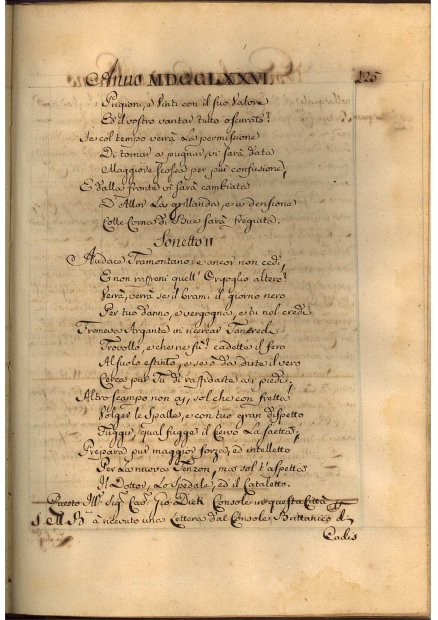 Anno MDCCLXXVI. 125
Prigione, e Vinti con il suo Valore
Ed il vostro vantar tutto oscurato?
Se col tempo verrà La permissione
Di tornar a pugnar, vi sarà data
Maggiore scossa per più confusione,
E dalla fronte vi sarà cambiata
D'Allor La grillanda, e a derisione
Colle Corna di Bue sarà fregiata.
Sonetto II
Audace Tramontano, e ancor non cedi,
E non rafreni quell' Orgoglio altero?
Verrà, verrà se il brami il giorno nero
Per tuo danno, e vergogna, e tu nol credi
Tremeva Argante in ricercar Tancredi
Trovollo, e che ne fu? cadette il fiero
Al suolo estinto, e se ò da dirte il vero
Cerca pur Tu di rassidarte a i piedi,
Altro scampo non ai, sol che con fretta
Volger le Spalle, e con tuo gran dispetto
Fuggir, qual fugge il Cervo La saetta;
Prepara pur maggior forza, ed intelletto
Per La nuova Tenzon, ma sol t'aspetta
Il Dottor, Lo Spedale, ed il Cataletto.
Questo Ill. Sig. Cav. Gio. Dick Console in questa Città di
S. M. B. à ricevuto una Lettera dal Console Brittanico di
Cadis